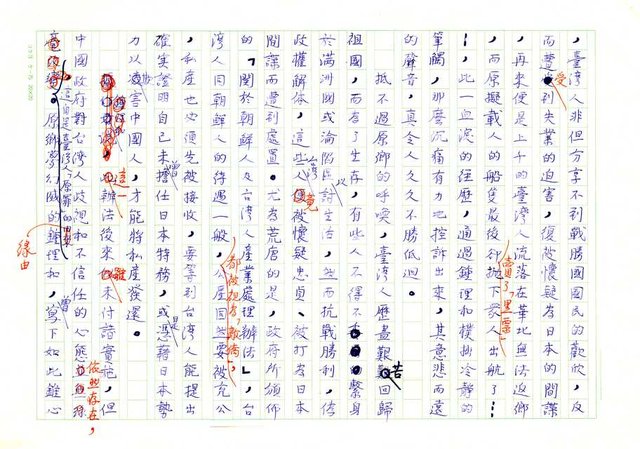 ，臺灣人非但分享不到戰勝國國民的歡欣，反
而遭受到失業的迫害，復被懷疑為日本的間諜
，再來便是上千的臺灣人流落在華北無法返鄉
，而原擬載人的船隻最後卻拋下眾人出航了……
賣了「黑票」
！此一血淚的經歷，通過鍾理和樸拙冷靜的
筆觸，那麼沉痛有力地控訴出來，其意悲而遠
的聲音，真令人久久不勝低迴。
抵不過原鄉的呼喚，臺灣人歷盡艱苦回歸
祖國，而為了生存，有些人不得不繫身
於滿洲國或淪陷區討生活，然而抗戰勝利，偽
政權解體，這些台灣人竟被懷疑忠貞、被打為日本
間諜而遭到處置。尤為荒唐的是，政府所頒佈
的「關於朝鮮人及台灣人產業處理辦法」，台
灣人同朝鮮人的待遇一般，都被視為「敵僑」，公產固然要被充公
，私產也必須先被接收，要等到台灣人能提出
確實證明自己未曾擔任日本特務，或是憑藉日本勢
力以凌害中國人，才能將私產發還。
這一辦法後來雖未付諸實施，但
中國政府對台灣人歧視和不信任的心態依然存在，
原鄉夢幻滅的鍾理和，曾寫下如此錐心
緣由